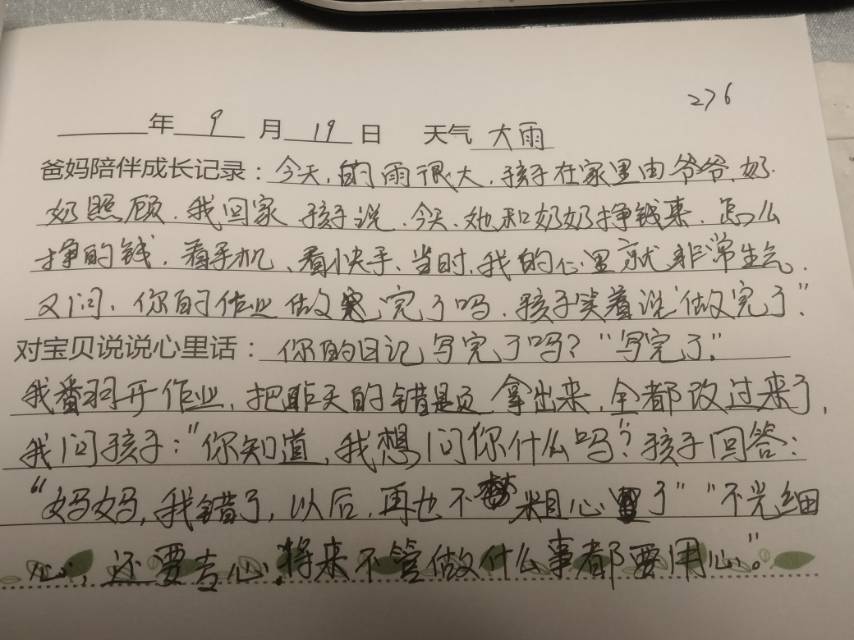 276
年 9 月 19 日 天气 大雨
爸妈陪伴成长记录：今天，的雨很大，孩子在家里由爷爷，奶
奶照顾，我回家孩子说，今天，她和奶奶挣钱来，怎么
挣的钱，看手机、看快手、当时，我的心里就非常生气，
又问，你的作业做完了吗，孩子笑着说“做完了”
对宝贝说说心里话：你的日记写完了吗？“写完了”
我翻开作业，把昨天的错题拿出来，全都改过来了，
我问孩子：“你知道，我想问你什么吗？孩子回答：
“妈妈，我错了，以后，再也不粗心了”“不光细
心，还要专心，将来不管做什么事都要用心”。